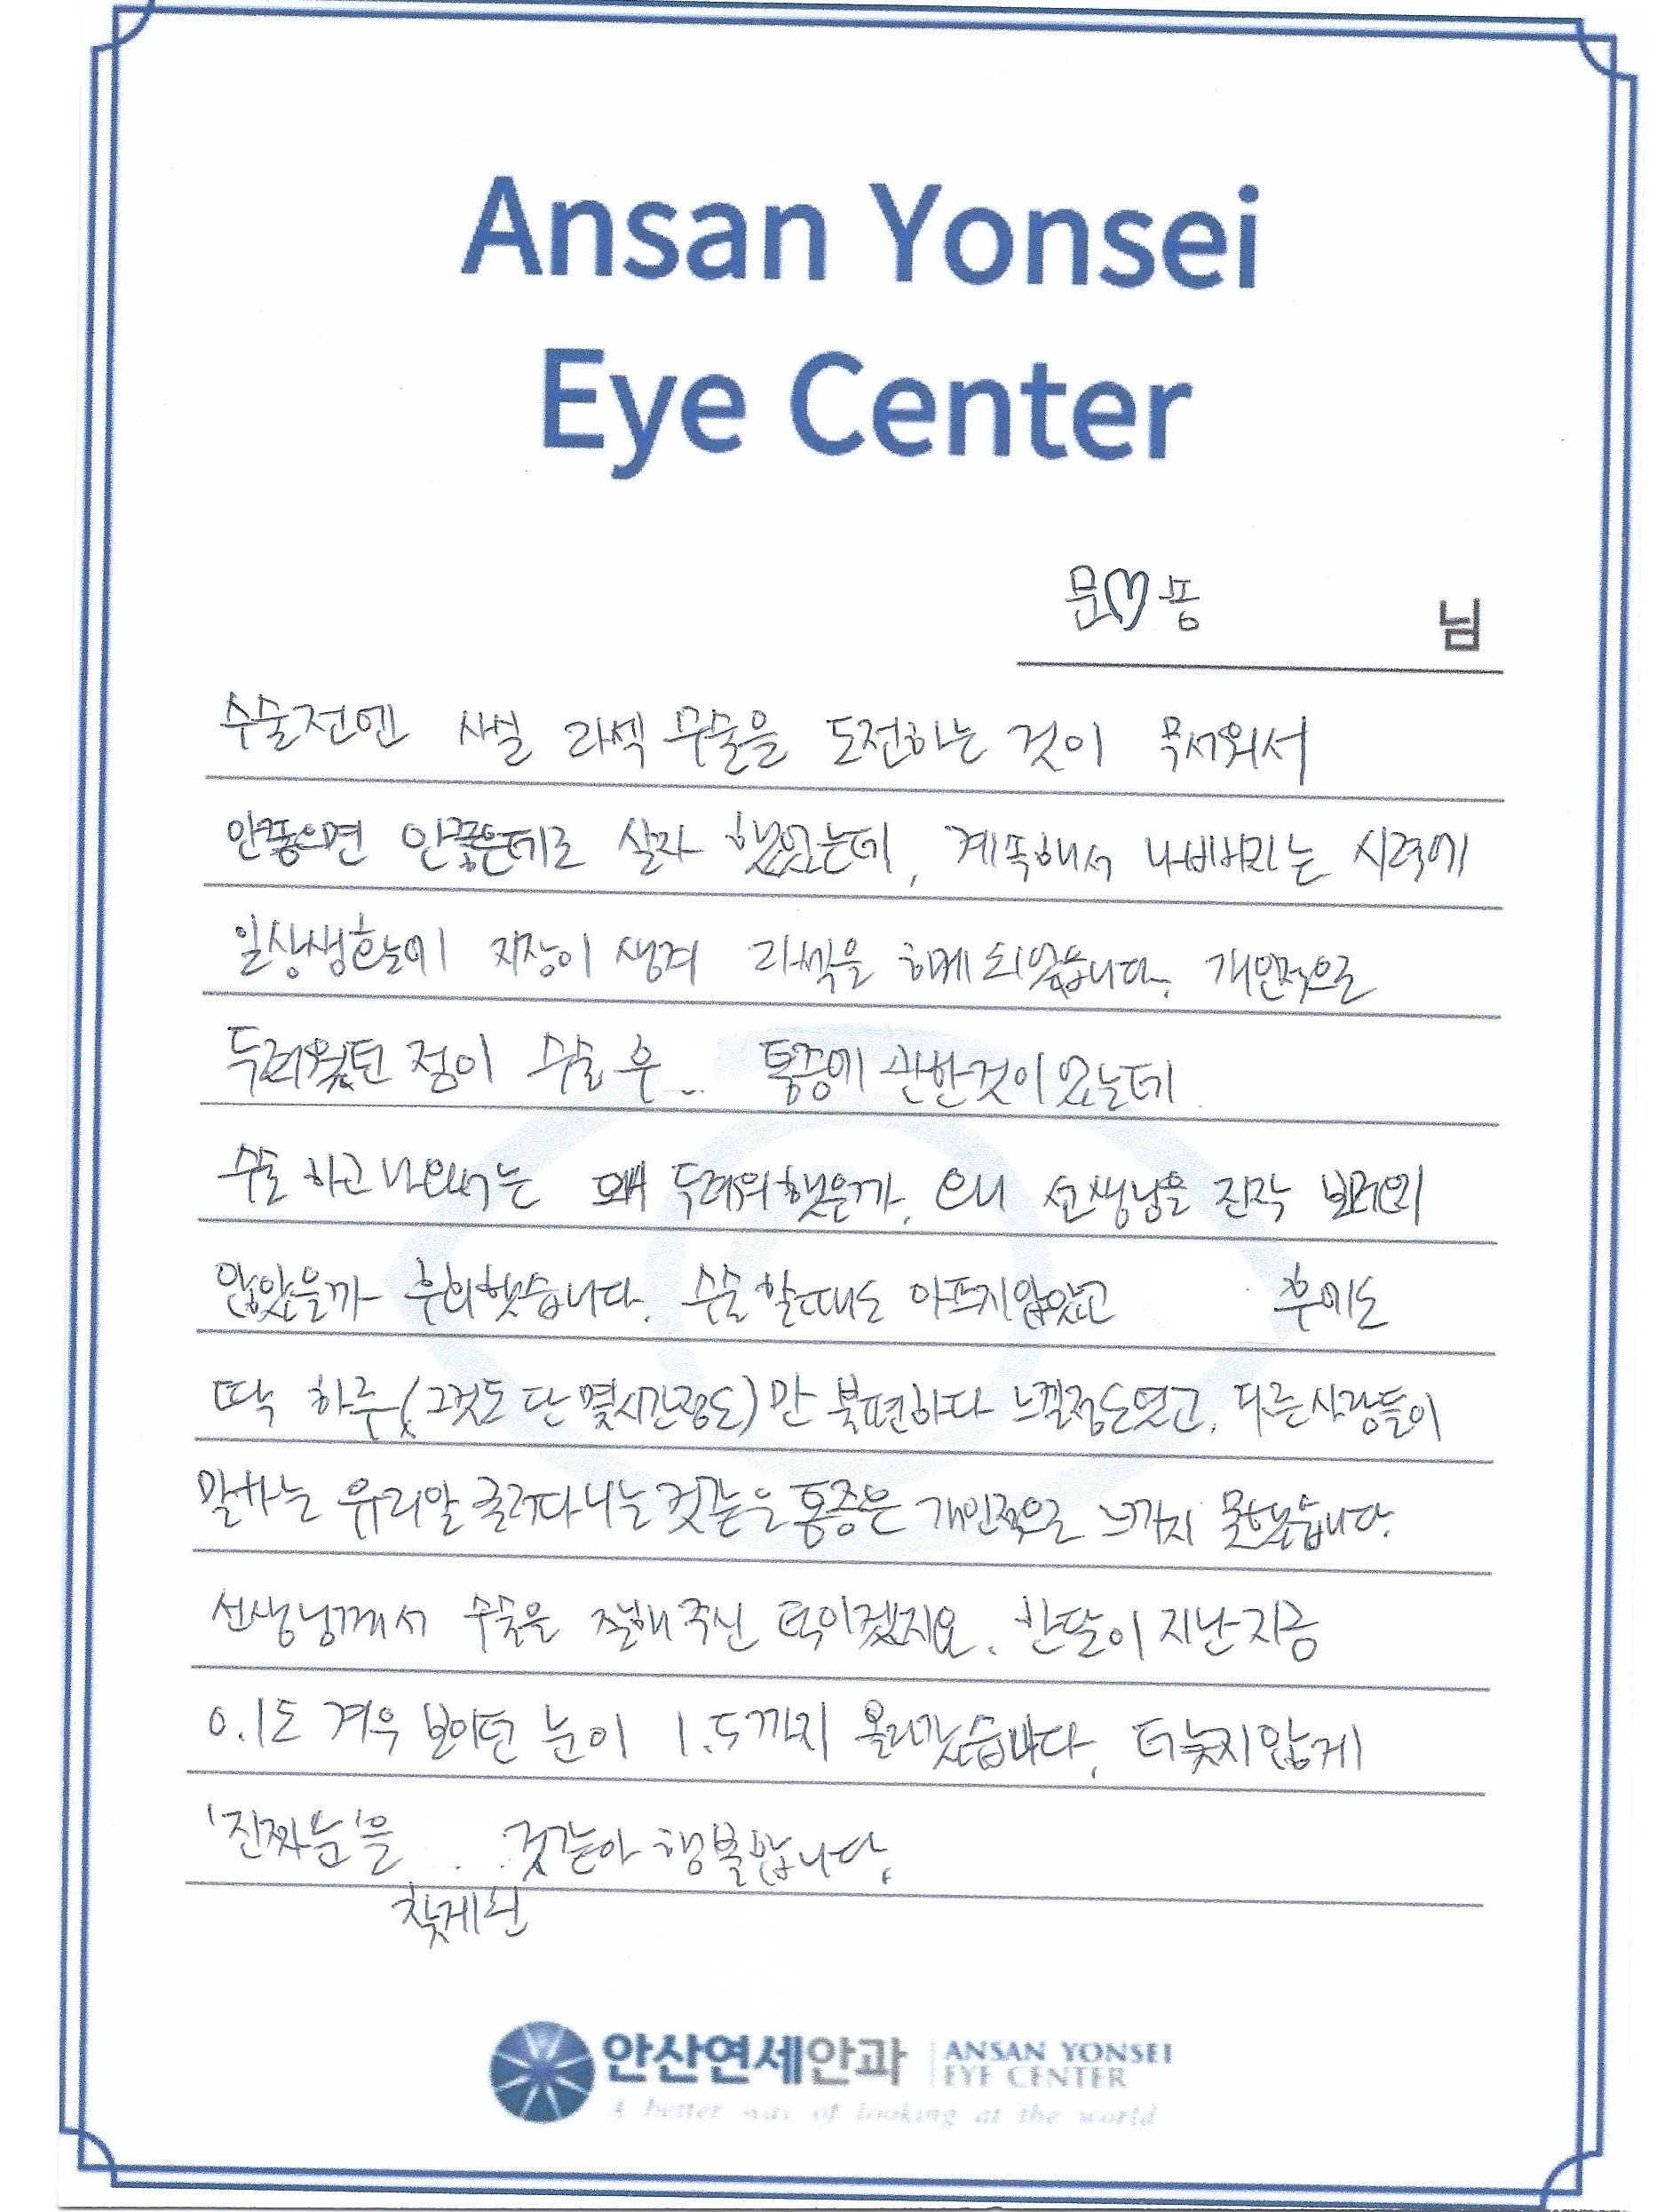 Ansan Yonsei
Eye Center
문♡용 님
수술전엔 사실 라섹 수술을 도전하는 것이 무서워서
안좋으면 안좋은데로 살자 했었는데, 계속해서 나빠버리는 시력에
일상생활에 지장이 생겨 라섹을 하게 되었습니다. 개인적으로
두려웠던 점이 수술 후.. 통증에 관한것이 있는데
수술 하고 나와서는 왜 두려워했을까, 왜 선생님을 진작 보러오지
않았을까 후회했습니다. 수술 할때도 아프지않았고 후에도
딱 하루(그것도 단 몇시간정도)만 불편하다 느낄정도였고, 다른사람들이
말하는 유리알 굴러다니는것같은 통증은 개인적으로 느끼지 못했습니다.
선생님께서 수술을 잘해 주신 덕이겠지요. 반달이 지난 지금
0.1도 겨우 보이던 눈이 1.5까지 올라갔습니다. 더 늦지않게
'진짜눈'을 찾게된 것같아 행복합니다.
안산연세안과 ANSAN YONSEI
EYE CENTER
A better way of looking at the world